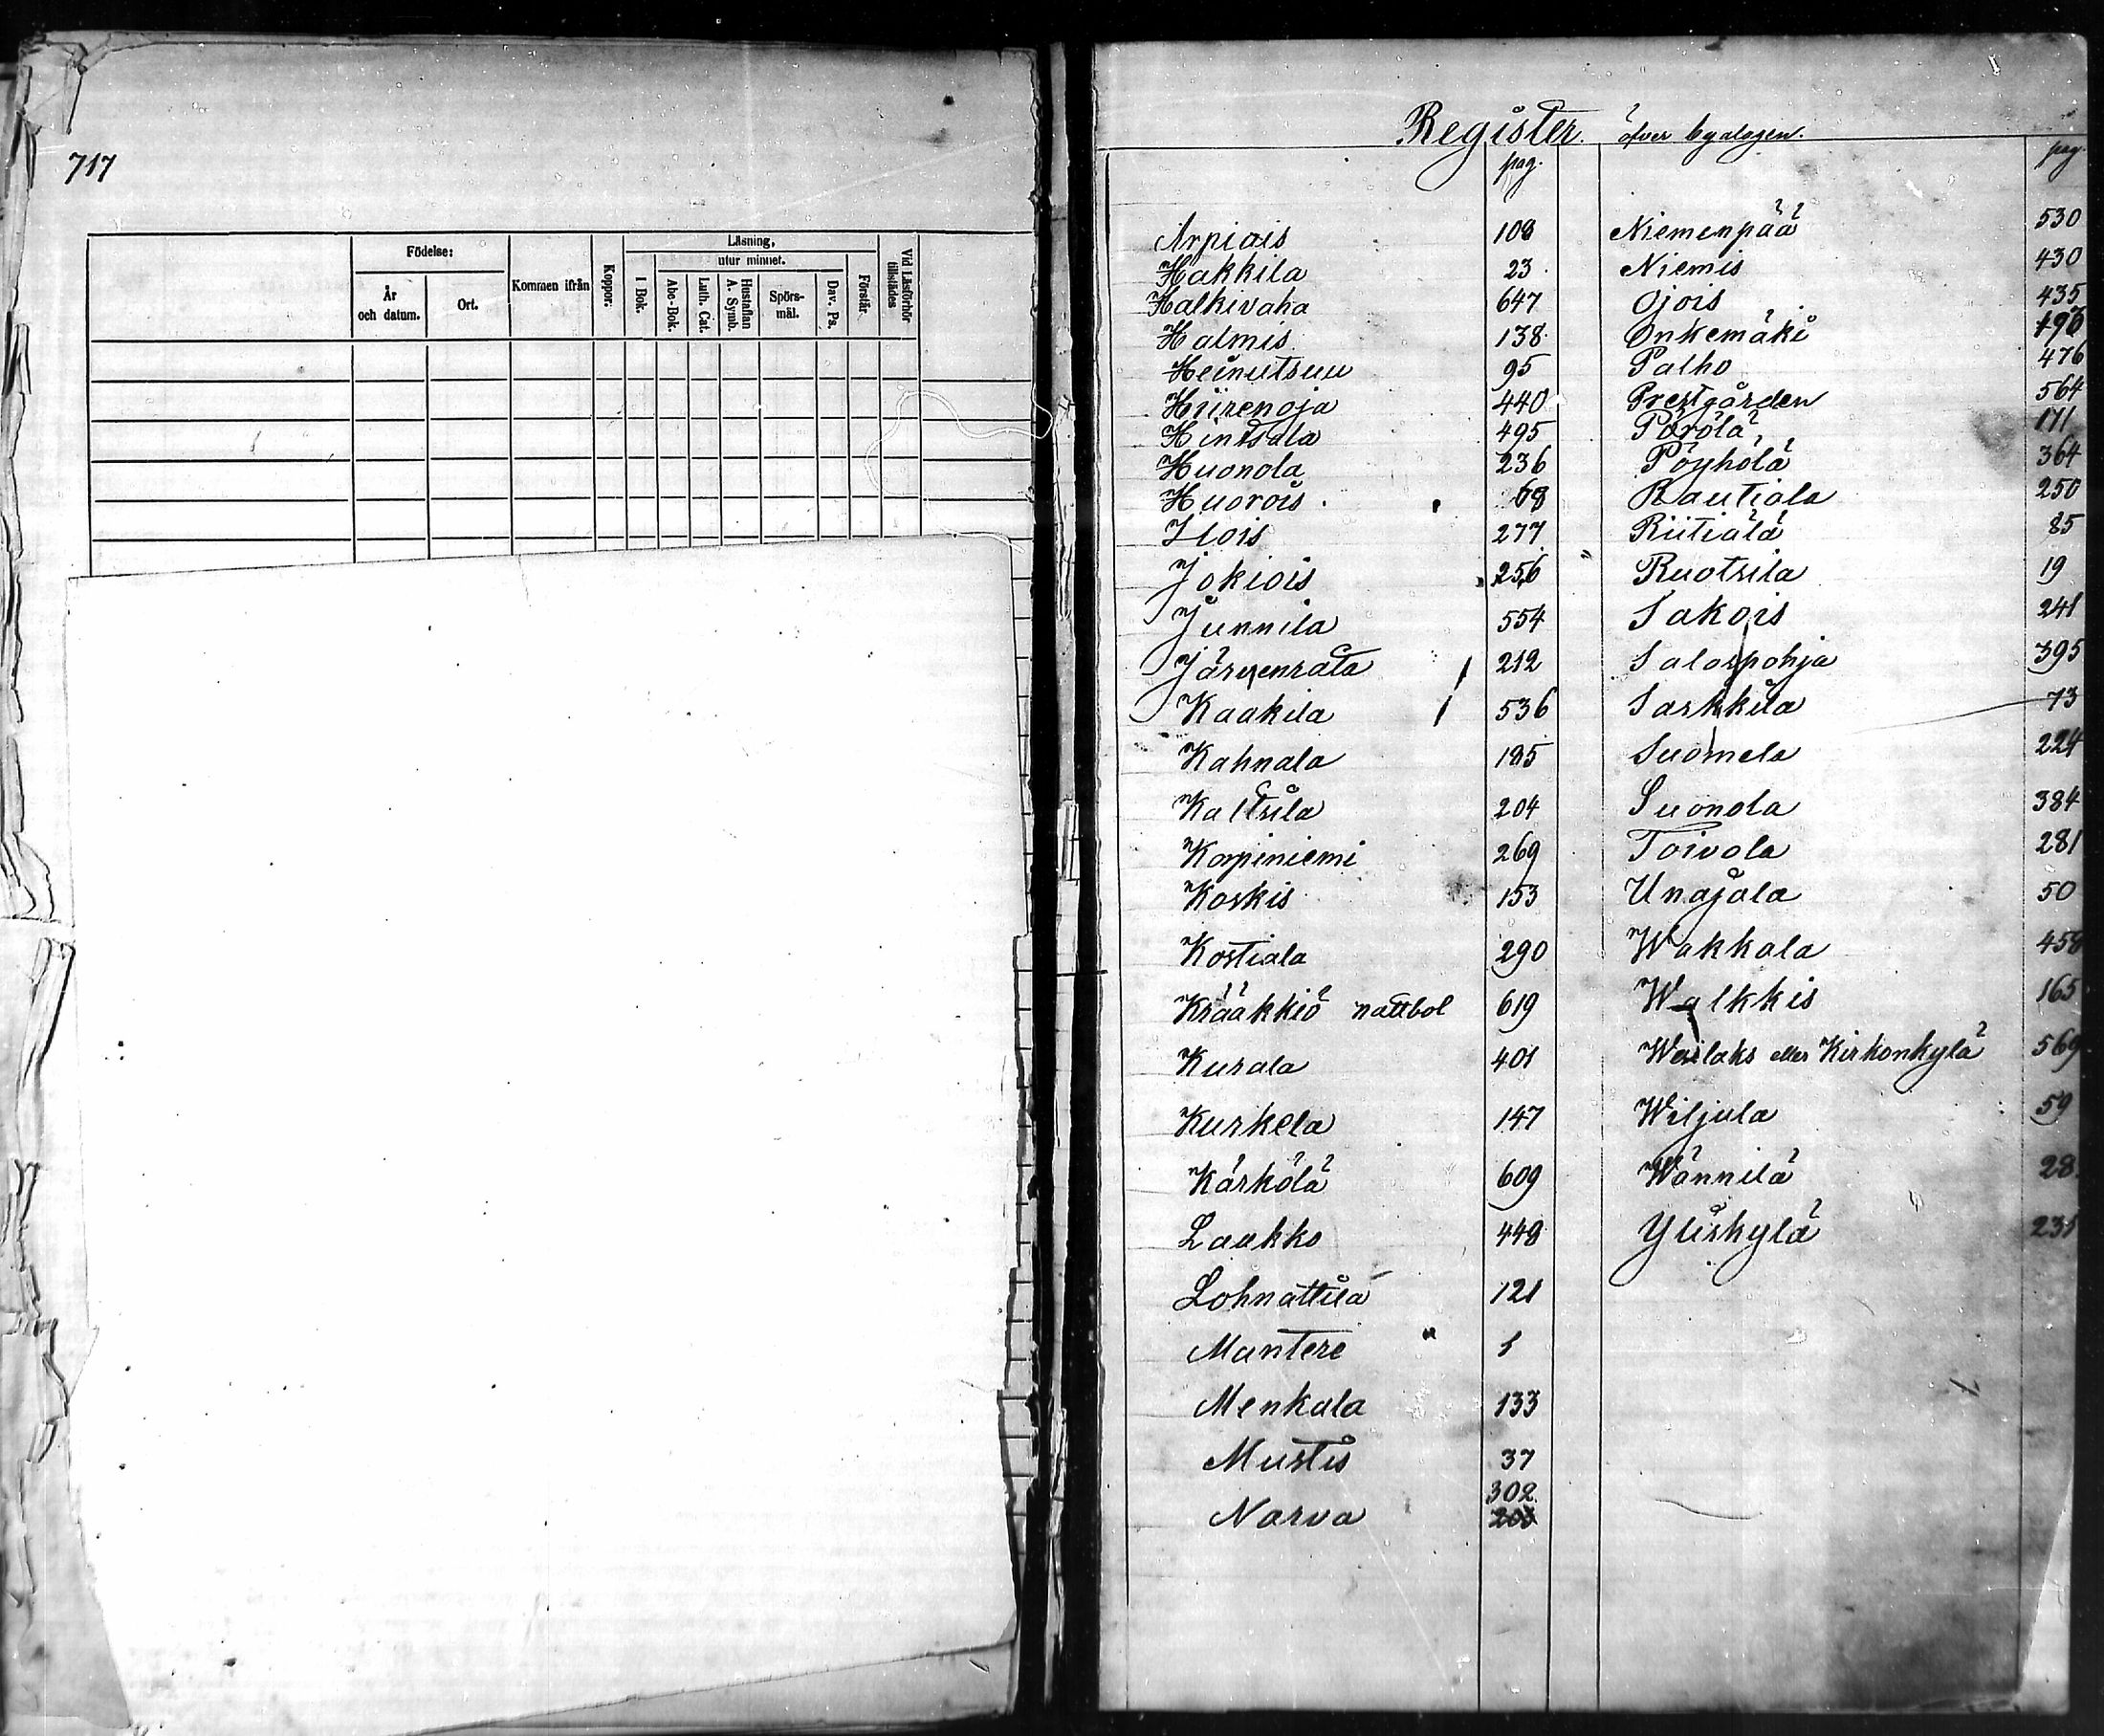 717
Födelse:
År och datum.
Ort.
Kommen ifrån
Koppor.
Läsning,
utur minnet.
I Bok.
Abc-Bok.
Luth. Cat.
Hustaflan A. Symb.
Spörs-mål.
Dav. Ps.
Förstår.
Vid Läsförhör tillstädes
Register öfver byalagen.
pag. pag.
Arpiais 108
Hakkila 23
Halkivaha 647
Halmis 138
Heinutsuu 95
Hiirenoja 440
Hintsala 495
Huonola 236
Huorois 68
Ilois 277
Jokiois 256
Junnila 554
Järvenrata 212
Kaakila 536
Kahnala 185
Kaltsila 204
Korpiniemi 269
Koskis 153
Kostiala 290
Krääkkiö nattbol 619
Kurala 401
Kurkela 147
Kärkölä 609
Laukko 448
Lohnattila 121
Mantere 1
Menkala 133
Mustis 37
302
Narva
Niemenpää 530
Niemis 430
Ojois 435
Onkemäki 490
Palho 476
Prestgården 564
Pörölä 171
Pöyhölä 364
Rautiala 250
Riitiälä 85
Ruotsila 19
Sakois 241
Salospohja 395
Sarkkila 73
Suomela 224
Suonola 384
Toivola 281
Unajala 50
Wakkala 458
Walkkis 165
Wesilaks eller Kirkonkylä 569
Wiljula 59
Wännilä 28
Yliskylä 231